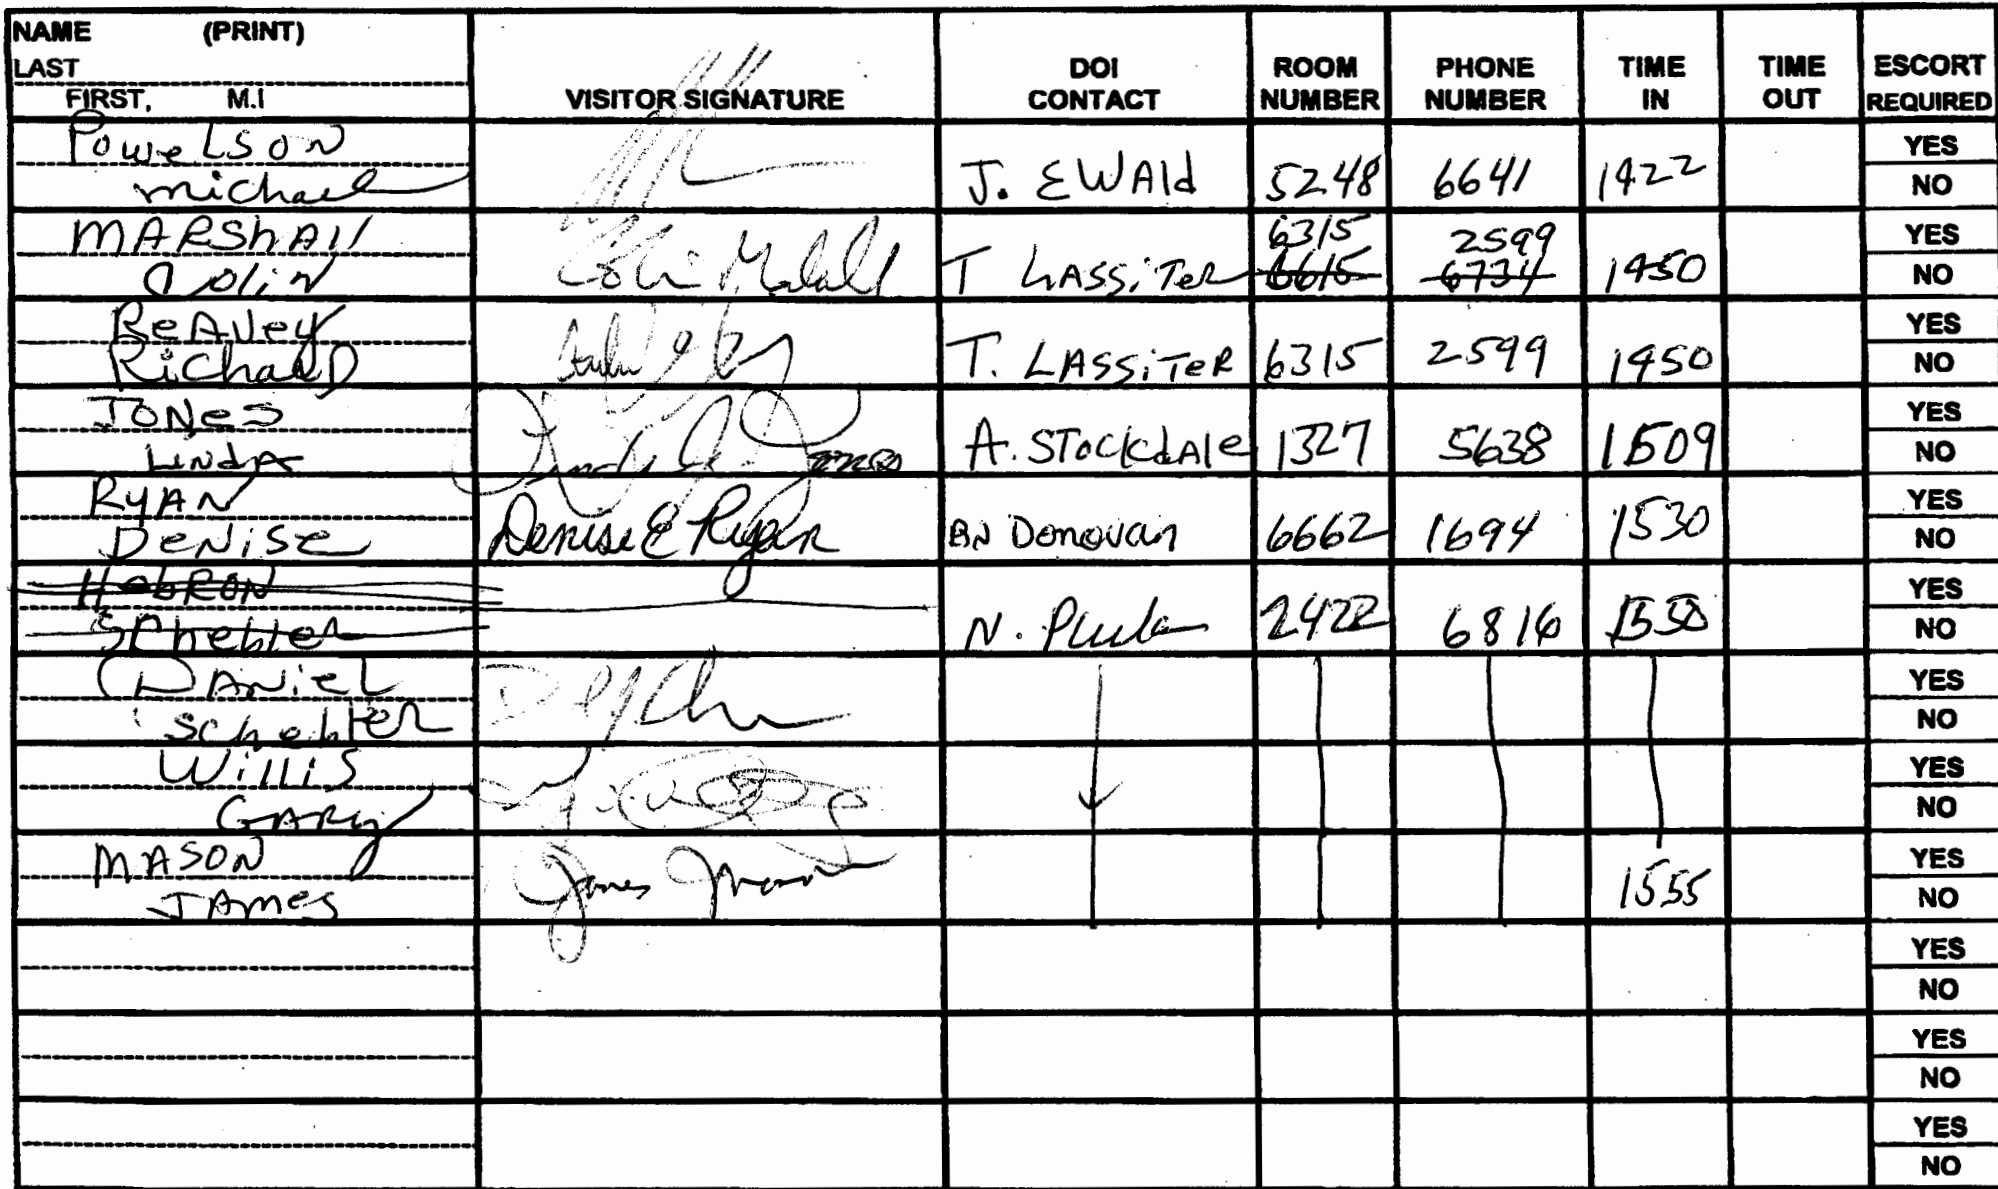 NAME (PRINT)
LAST
FIRST, M.I
VISITOR SIGNATURE
DOI CONTACT
ROOM NUMBER
PHONE NUMBER
TIME IN
TIME OUT
ESCORT REQUIRED
Powelson
michael
J. EWAld 5248 6641 1422
YES
NO
MARShAll
Colin
Colin
6315 2599
T LASSiTeR 6615 6734 1450
YES
NO
ReAVey
RichaRD
T. LASSiTeR 6315 2599 1450
YES
NO
JONes
LiNdA
Linda Jones
A. STockdAle 1327 5638 1509
YES
NO
RyAN
DeNise
Denise E Ryan
BN Donovan 6662 1694 1530
YES
NO
HebRON
N. 2422 6816 1550
YES
NO
DANieL
YES
NO
WilliS
GARy
YES
NO
MASON
JAmes
James Mason
1555
YES
NO
YES
NO
YES
NO
YES
NO